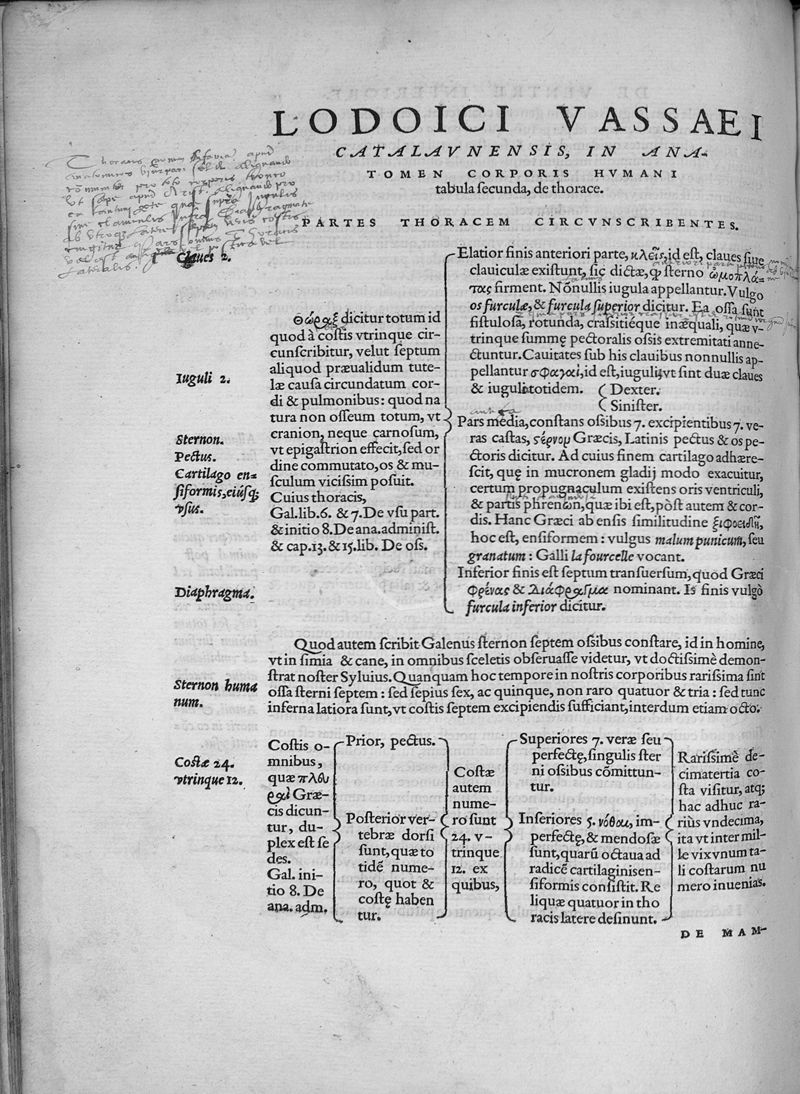 LODOICI VASSAEI
CATALAVNENSIS, IN ANA-
TOMEN CORPORIS HVMANI
tabula secunda, de thorace.
PARTES THORACEM CIRCVNSCRIBENTES.
Claues 2.
Iuguli 2.
Sternon.
Pectus.
Cartilago en-
siformis, eiúsq;
vsus.
Diaphragma.
Θώραξ dicitur totum id
quod à costis vtrinque cir-
cunscribitur, velut septum
aliquod præualidum tute-
læ causa circundatum cor-
di & pulmonibus: quod na
tura non osseum totum, vt
cranion, neque carnosum,
vt epigastrion effecit, sed or
dine commutato, os & mu-
sculum vicissim posuit.
Cuius thoracis,
Gal.lib.6. & 7. De vsu part.
& initio 8. De ana. administ.
& cap.13. & 15. lib. De oss.
Elatior finis anteriori parte, κλεῖς, id est, claues siue
clauiculæ existunt, sic dictæ, q̃ sterno ὠμοπλά-
τας firment. Nõnullis iugula appellantur. Vulgo
os furculæ, & furcula superior dicitur. Ea ossa sunt
fistulosa, rotunda, crassitiéque inæquali, quæ v-
trinque summę pectoralis ossis extremitati anne-
ctuntur. Cauitates sub his clauibus nonnullis ap-
pellantur σφαγαὶ, id est, iuguli, vt sint duæ claues
& iuguli totidem. Dexter.
Sinister.
Pars media, constans ossibus 7. excipientibus 7. ve-
ras castas, ςέρνομ Græcis, Latinis pectus & os pe-
ctoris dicitur. Ad cuius finem cartilago adhære-
scit, quę in mucronem gladij modo exacuitur,
certum propugnaculum existens oris ventriculi,
& partis phrenω̃n, quæ ibi est, pòst autem & cor-
dis. Hanc Græci ab ensis similitudine ξιφοειδῆ,
hoc est, ensiformem: vulgus malum punicum, seu
granatum: Galli la fourcelle vocant.
Inferior finis est septum transuersum, quod Græci
φρένας & διάφραγμα nominant. Is finis vulgò
furcula inferior dicitur.
Sternon huma
num.
Quod autem scribit Galenus sternon septem ossibus constare, id in homine,
vt in simia & cane, in omnibus sceletis obseruasse videtur, vt doctissimè demon-
strat noster Syluius. Quanquam hoc tempore in nostris corporibus rarissima sint
ossa sterni septem: sed sepius sex, ac quinque, non raro quatuor & tria: sed tunc
inferna latiora sunt, vt costis septem excipiendis sufficiant, interdum etiam octo.
Costæ 24.
vtrinque 12.
Costis o-
mnibus,
quæ πλθυ
ραὶ Græ-
cis dicun-
tur, du-
plex est se
des.
Gal. ini-
tio 8. De
ana. adm.
Prior, pectus.
Posterior ver-
tebræ dorsi
sunt, quæ to
tidẽ nume-
ro, quot &
costę haben
tur.
Costæ
autem
nume-
ro sunt
24. v-
trinque
12. ex
quibus,
Superiores 7. veræ seu
perfectę, singulis ster
ni ossibus cõmittun-
tur.
Inferiores 5. νόθαι, im-
perfectę, & mendosæ
sunt, quarũ octaua ad
radicẽ cartilaginis en-
siformis consistit. Re
liquæ quatuor in tho
racis latere desinunt.
Rarissimè de-
cimatertia co-
sta visitur, atq;
hac adhuc ra-
riùs vndecima,
ita vt inter mil-
le vix vnum ta-
li costarum nu
mero inuenias.
DE MAM-